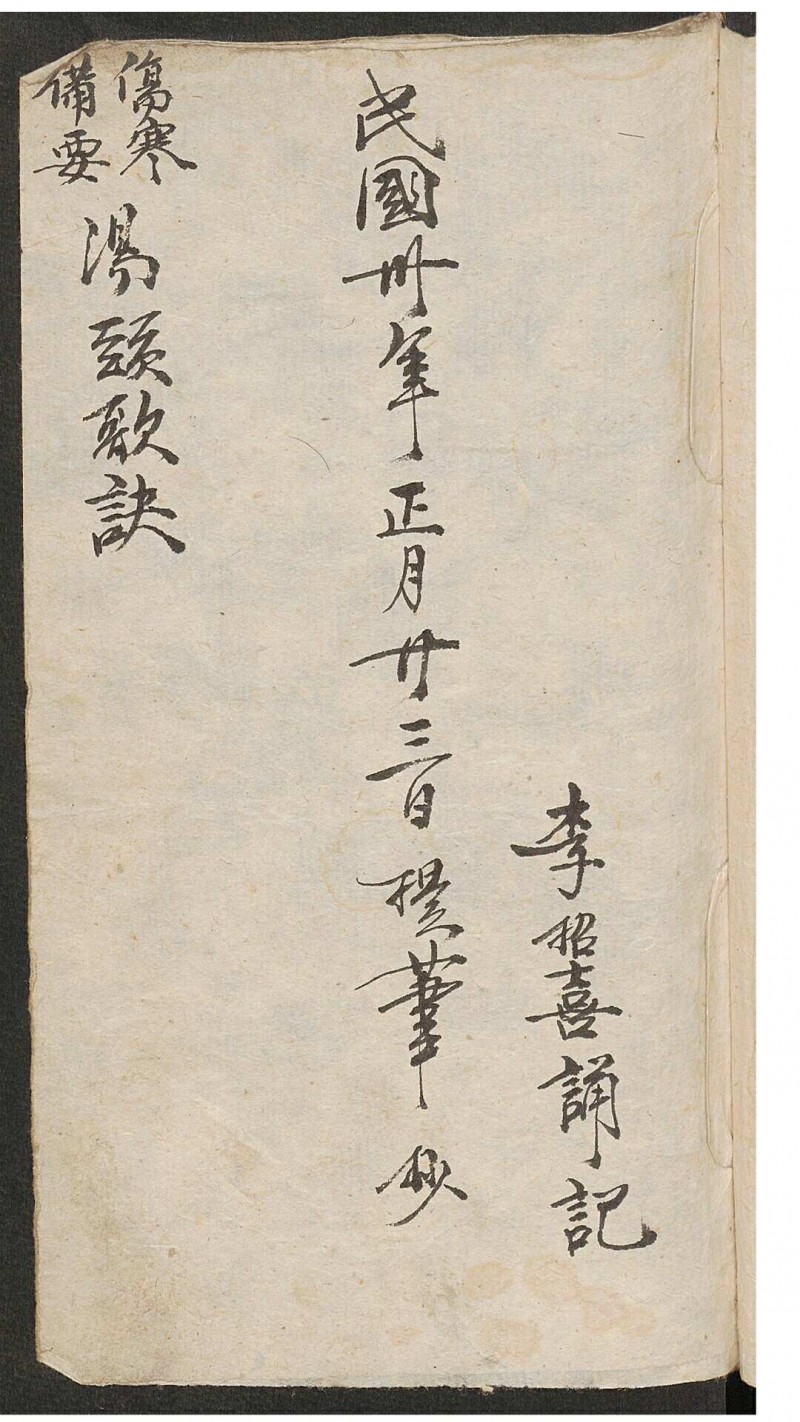 李招喜誦記
民國卅年正月廿三日撰筆抄
傷寒
備要
湯頭歌訣